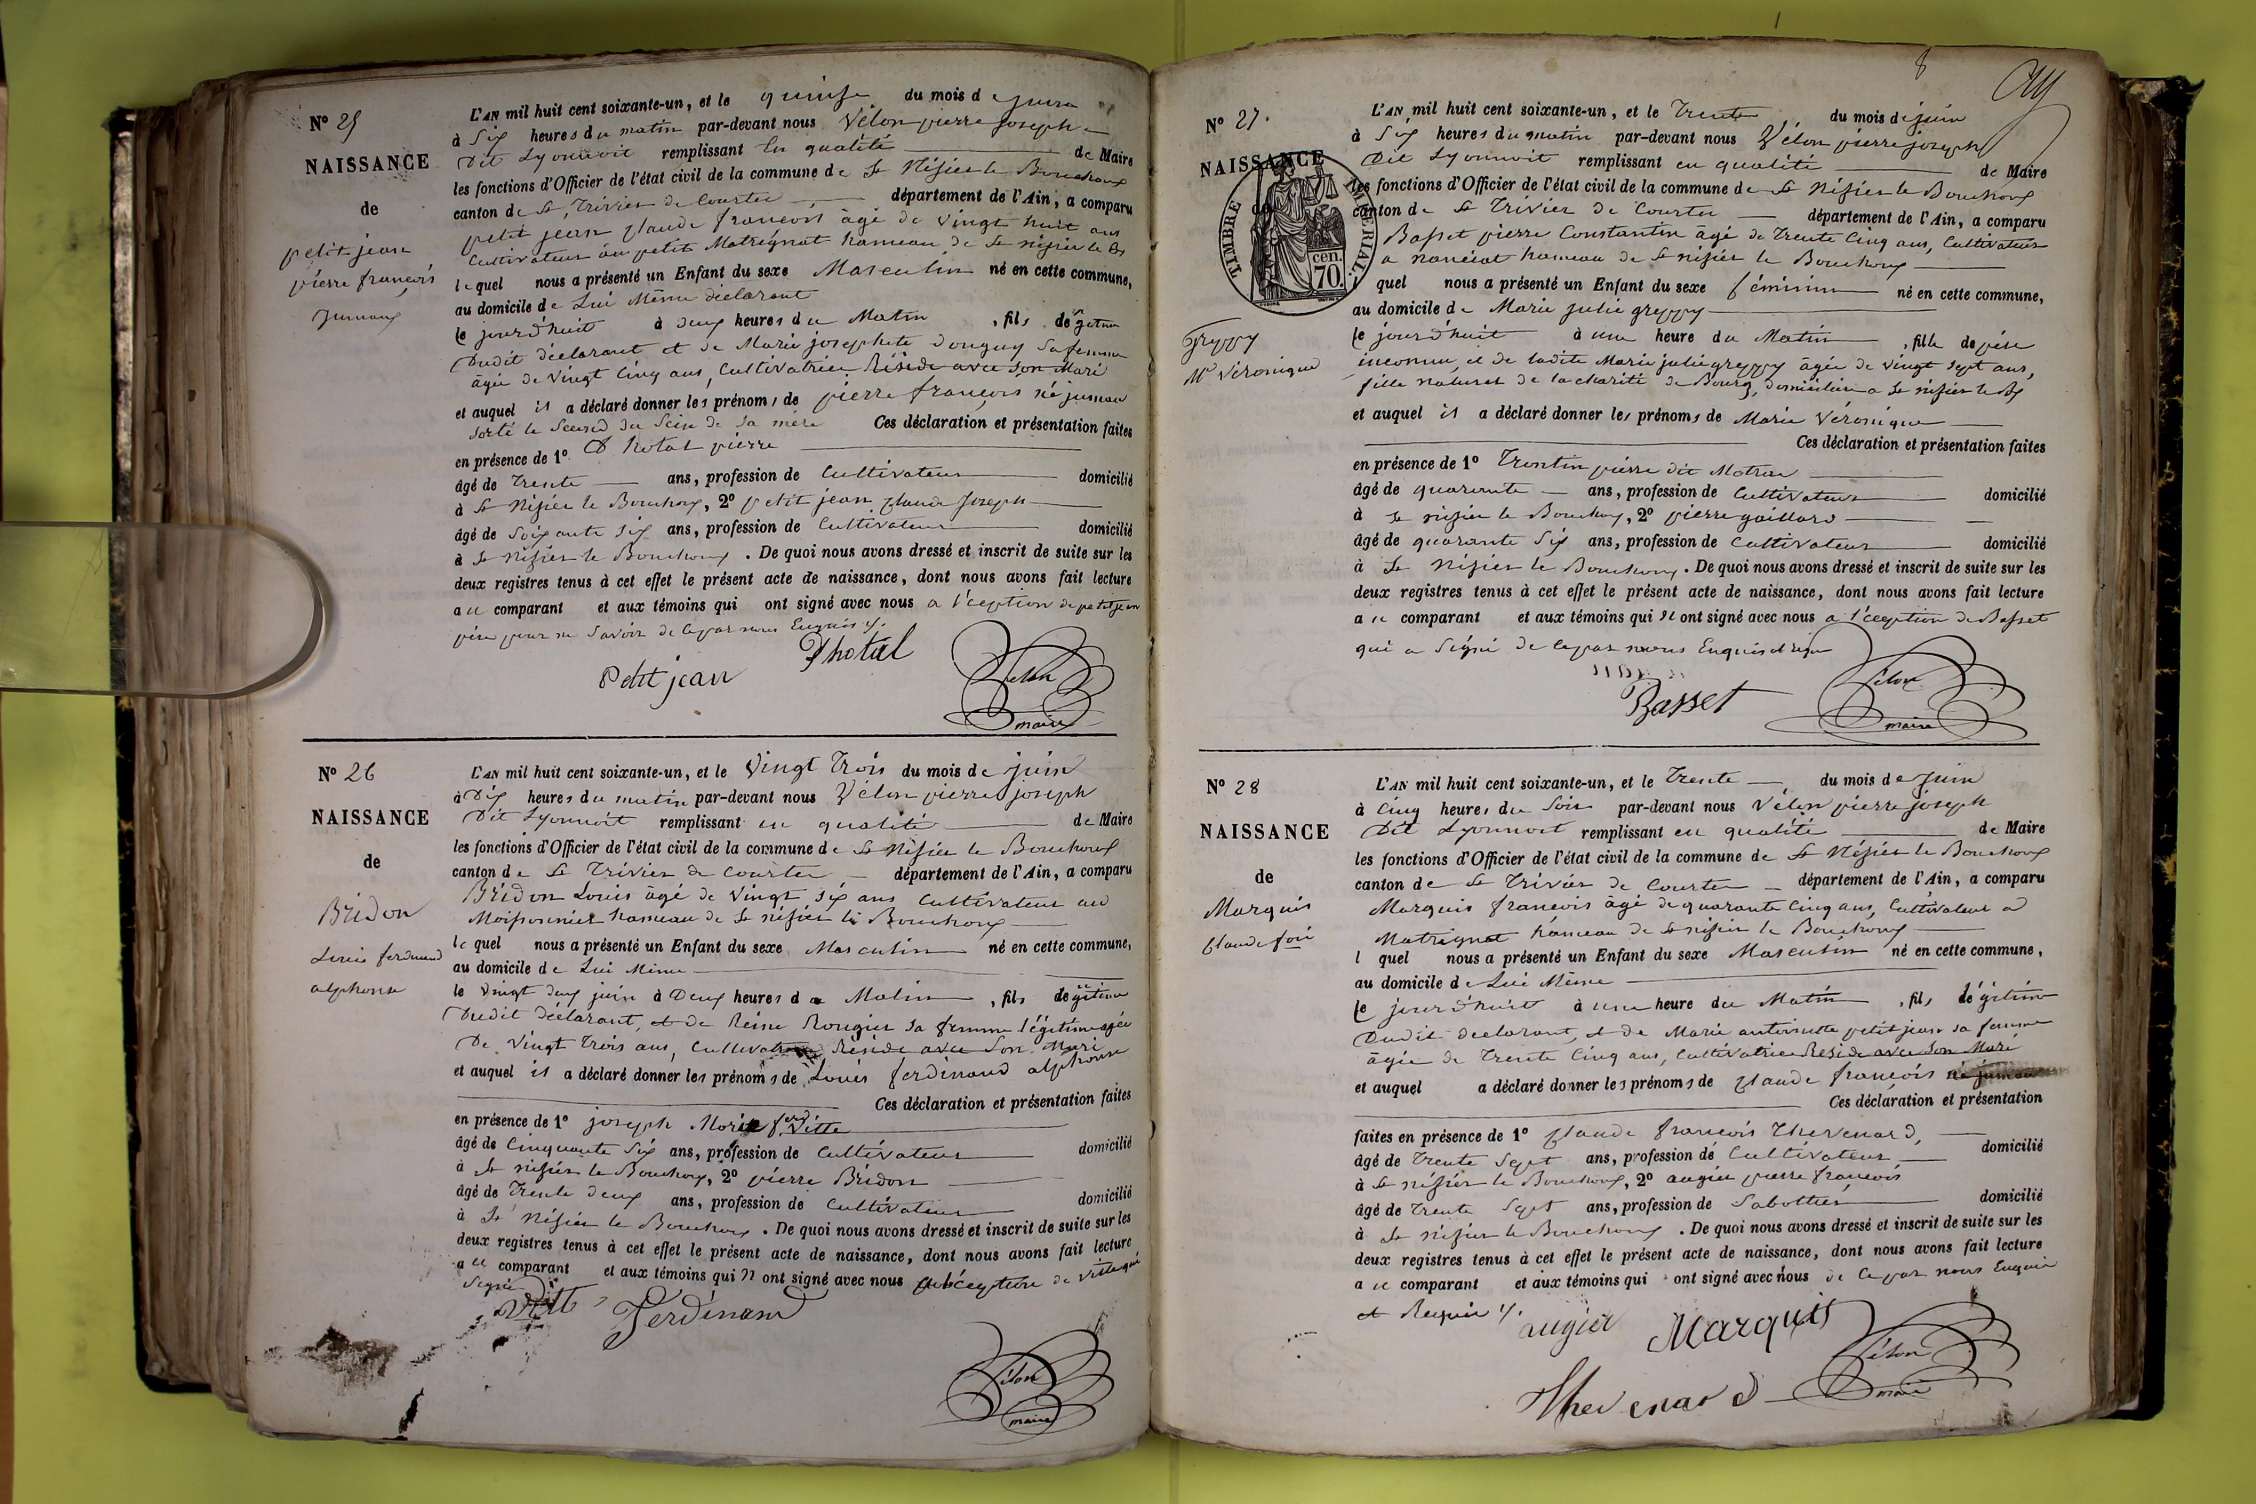 N° 25
NAISSANCE
de
petit jean
pierre françois
jumeau
L'AN mil huit cent soixante-un, et le quinze du mois de juin
à Six heures du matin par-devant nous Vélon pierre joseph
Dit Lyonnoit remplissant en qualité de Maire
les fonctions d'Officier de l'état civil de la commune de St Nisier le Bouchoux
canton de St Trivier de Courtes département de l'Ain, a comparu
petit jean claude françois âgé de vingt huit ans
Cultivateur au petit Matrignat hameau de St nisier le Bx
le quel nous a présenté un Enfant du sexe Masculin né en cette commune,
au domicile de Lui Même déclarant
le jourd'huit à deux heures du Matin, fils légitime
Dudit déclarant et de Marie josephete Donguy sa femme
âgée de vingt Cinq ans, Cultivatrice Réside avec Son Mari
et auquel il a déclaré donner les prénoms de pierre françois né jumeau
Sorti le Second du Sein de Sa mère Ces déclaration et présentation faites
en présence de 1° Chotal pierre
âgé de Trente ans, profession de Cultivateur domicilié
à St Nisier le Bouchoux, 2° petit jean claude Joseph
âgé de Soixante Six ans, profession de Cultivateur domicilié
à St Nisier le Bouchoux. De quoi nous avons dressé et inscrit de suite sur les
deux registres tenus à cet effet le présent acte de naissance, dont nous avons fait lecture
au comparant et aux témoins qui ont signé avec nous a l'éception de petit jean
père pour ne Savoir de ce par nous Enquis
Petit jean
Chotal
Vélon
maire
N° 26
NAISSANCE
de
Bridon
Louis ferdinand
alphonse
L'AN mil huit cent soixante-un, et le Vingt Trois du mois de juin
à Dix heures du matin par-devant nous Vélon pierre joseph
Dit Lyonnoit remplissant en qualité de Maire
les fonctions d'Officier de l'état civil de la commune de St Nisier le Bouchoux
canton de St Trivier de Courtes département de l'Ain, a comparu
Bridon Louis âgé de vingt Six ans Cultivateur au
Moissonnier hameau de St nisier le Bouchoux
le quel nous a présenté un Enfant du sexe Masculin né en cette commune,
au domicile de Lui Même
le vingt deux juin à Deux heures du Matin, fils légitime
Dudit déclarant, et de Reine Rongier sa femme légitime agée
De vingt Trois ans, Cultivatrice Réside avec Son Mari
et auquel il a déclaré donner les prénoms de Louis ferdinand alphonse
Ces déclaration et présentation faites
en présence de 1° joseph Marie ferd Vitte
âgé de Cinquante Six ans, profession de Cultivateur domicilié
à St nisier le Bouchoux, 2° pierre Bridon
âgé de Trente deux ans, profession de Cultivateur domicilié
à St Nisier le Bouchoux. De quoi nous avons dressé et inscrit de suite sur les
deux registres tenus à cet effet le présent acte de naissance, dont nous avons fait lecture
au comparant et aux témoins qui n'ont signé avec nous a l'éception de Vitte qui
Signé
Vitte Ferdinand
Vélon
maire
8
N° 27.
NAISSANCE
de
TIMBRE IMPÉRIAL
70 cen.
Greppy
Mie Véronique
L'AN mil huit cent soixante-un, et le Trente du mois de juin
à Six heures du matin par-devant nous Vélon pierre joseph
Dit Lyonnoit remplissant en qualité de Maire
les fonctions d'Officier de l'état civil de la commune de St Nisier le Bouchoux
canton de St Trivier de Courtes département de l'Ain, a comparu
Basset pierre Constantin âgé de Trente Cinq ans, Cultivateur
a nancéat hameau de St nisier le Bouchoux
l quel nous a présenté un Enfant du sexe féminin né en cette commune,
au domicile de Marie julie greppy
le jourd'huit à une heure du Matin, fille de père
inconnu, et de ladite Marie julie greppy âgée de vingt Sept ans,
fille naturel de la charité de Bourg, domiciliée a St nisier le Bx
et auquel il a déclaré donner les prénoms de Marie Véronique
Ces déclaration et présentation faites
en présence de 1° Trontin pierre dit Matras
âgé de quarante ans, profession de Cultivateur domicilié
à St nisier le Bouchoux, 2° pierre gaillard
âgé de quarante Six ans, profession de Cultivateur domicilié
à St Nisier le Bouchoux. De quoi nous avons dressé et inscrit de suite sur les
deux registres tenus à cet effet le présent acte de naissance, dont nous avons fait lecture
au comparant et aux témoins qui n'ont signé avec nous a l'éception de Basset
qui a Signé de ce par nous Enquis et requis
Basset
Vélon
maire
N° 28
NAISSANCE
de
Marquis
claude foi
L'AN mil huit cent soixante-un, et le Trente du mois de Juin
à Cinq heures du Soir par-devant nous Vélon pierre joseph
Dit Lyonnoit remplissant en qualité de Maire
les fonctions d'Officier de l'état civil de la commune de St Nisier le Bouchoux
canton de St Trivier de Courtes département de l'Ain, a comparu
Marquis françois âgé de quarante Cinq ans, Cultivateur a
Matrignat hameau de St nisier le Bouchoux
l quel nous a présenté un Enfant du sexe Masculin né en cette commune,
au domicile de Lui Même
le jourd'huit à une heure du Matin, fils légitime
Dudit déclarant, et de Marie antoinette petit jean sa femme
âgée de Trente Cinq ans, Cultivatrice Réside avec Son Mari
et auquel a déclaré donner les prénoms de claude françois né jumeau
Ces déclaration et présentation
faites en présence de 1° claude françois Thevenard,
âgé de Trente Sept ans, profession de Cultivateur domicilié
à St nisier le Bouchoux, 2° augier pierre françois
âgé de Trente Sept ans, profession de Sabottier domicilié
à St Nisier le Bouchoux. De quoi nous avons dressé et inscrit de suite sur les
deux registres tenus à cet effet le présent acte de naissance, dont nous avons fait lecture
au comparant et aux témoins qui ont signé avec nous de ce par nous Enquis
et Requis
augier
Marquis
Thevenard
Vélon
maire